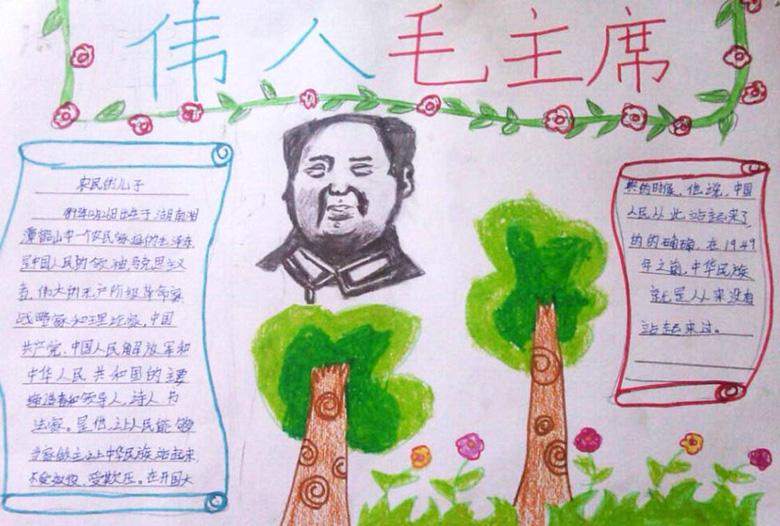 伟人毛主席
农民的儿子
日出生于湖南湘
潭韶山冲一个农民家庭的毛泽东
是中国人民的领袖,马克思主义
者,伟大的无产阶级革命家
战略家和理论家,中国
共产党、中国人民解放军和
中华人民共和国的主要
缔造者和领导人,诗人,书
法家。是他,让人民能够
当家做主,让中华民族站起来
不受奴役、受欺压。在开国大
典的时候,他说,中国
人民从此站起来了
的的确确,在1949
年之前,中华民族
就是从来没有
站起来过。